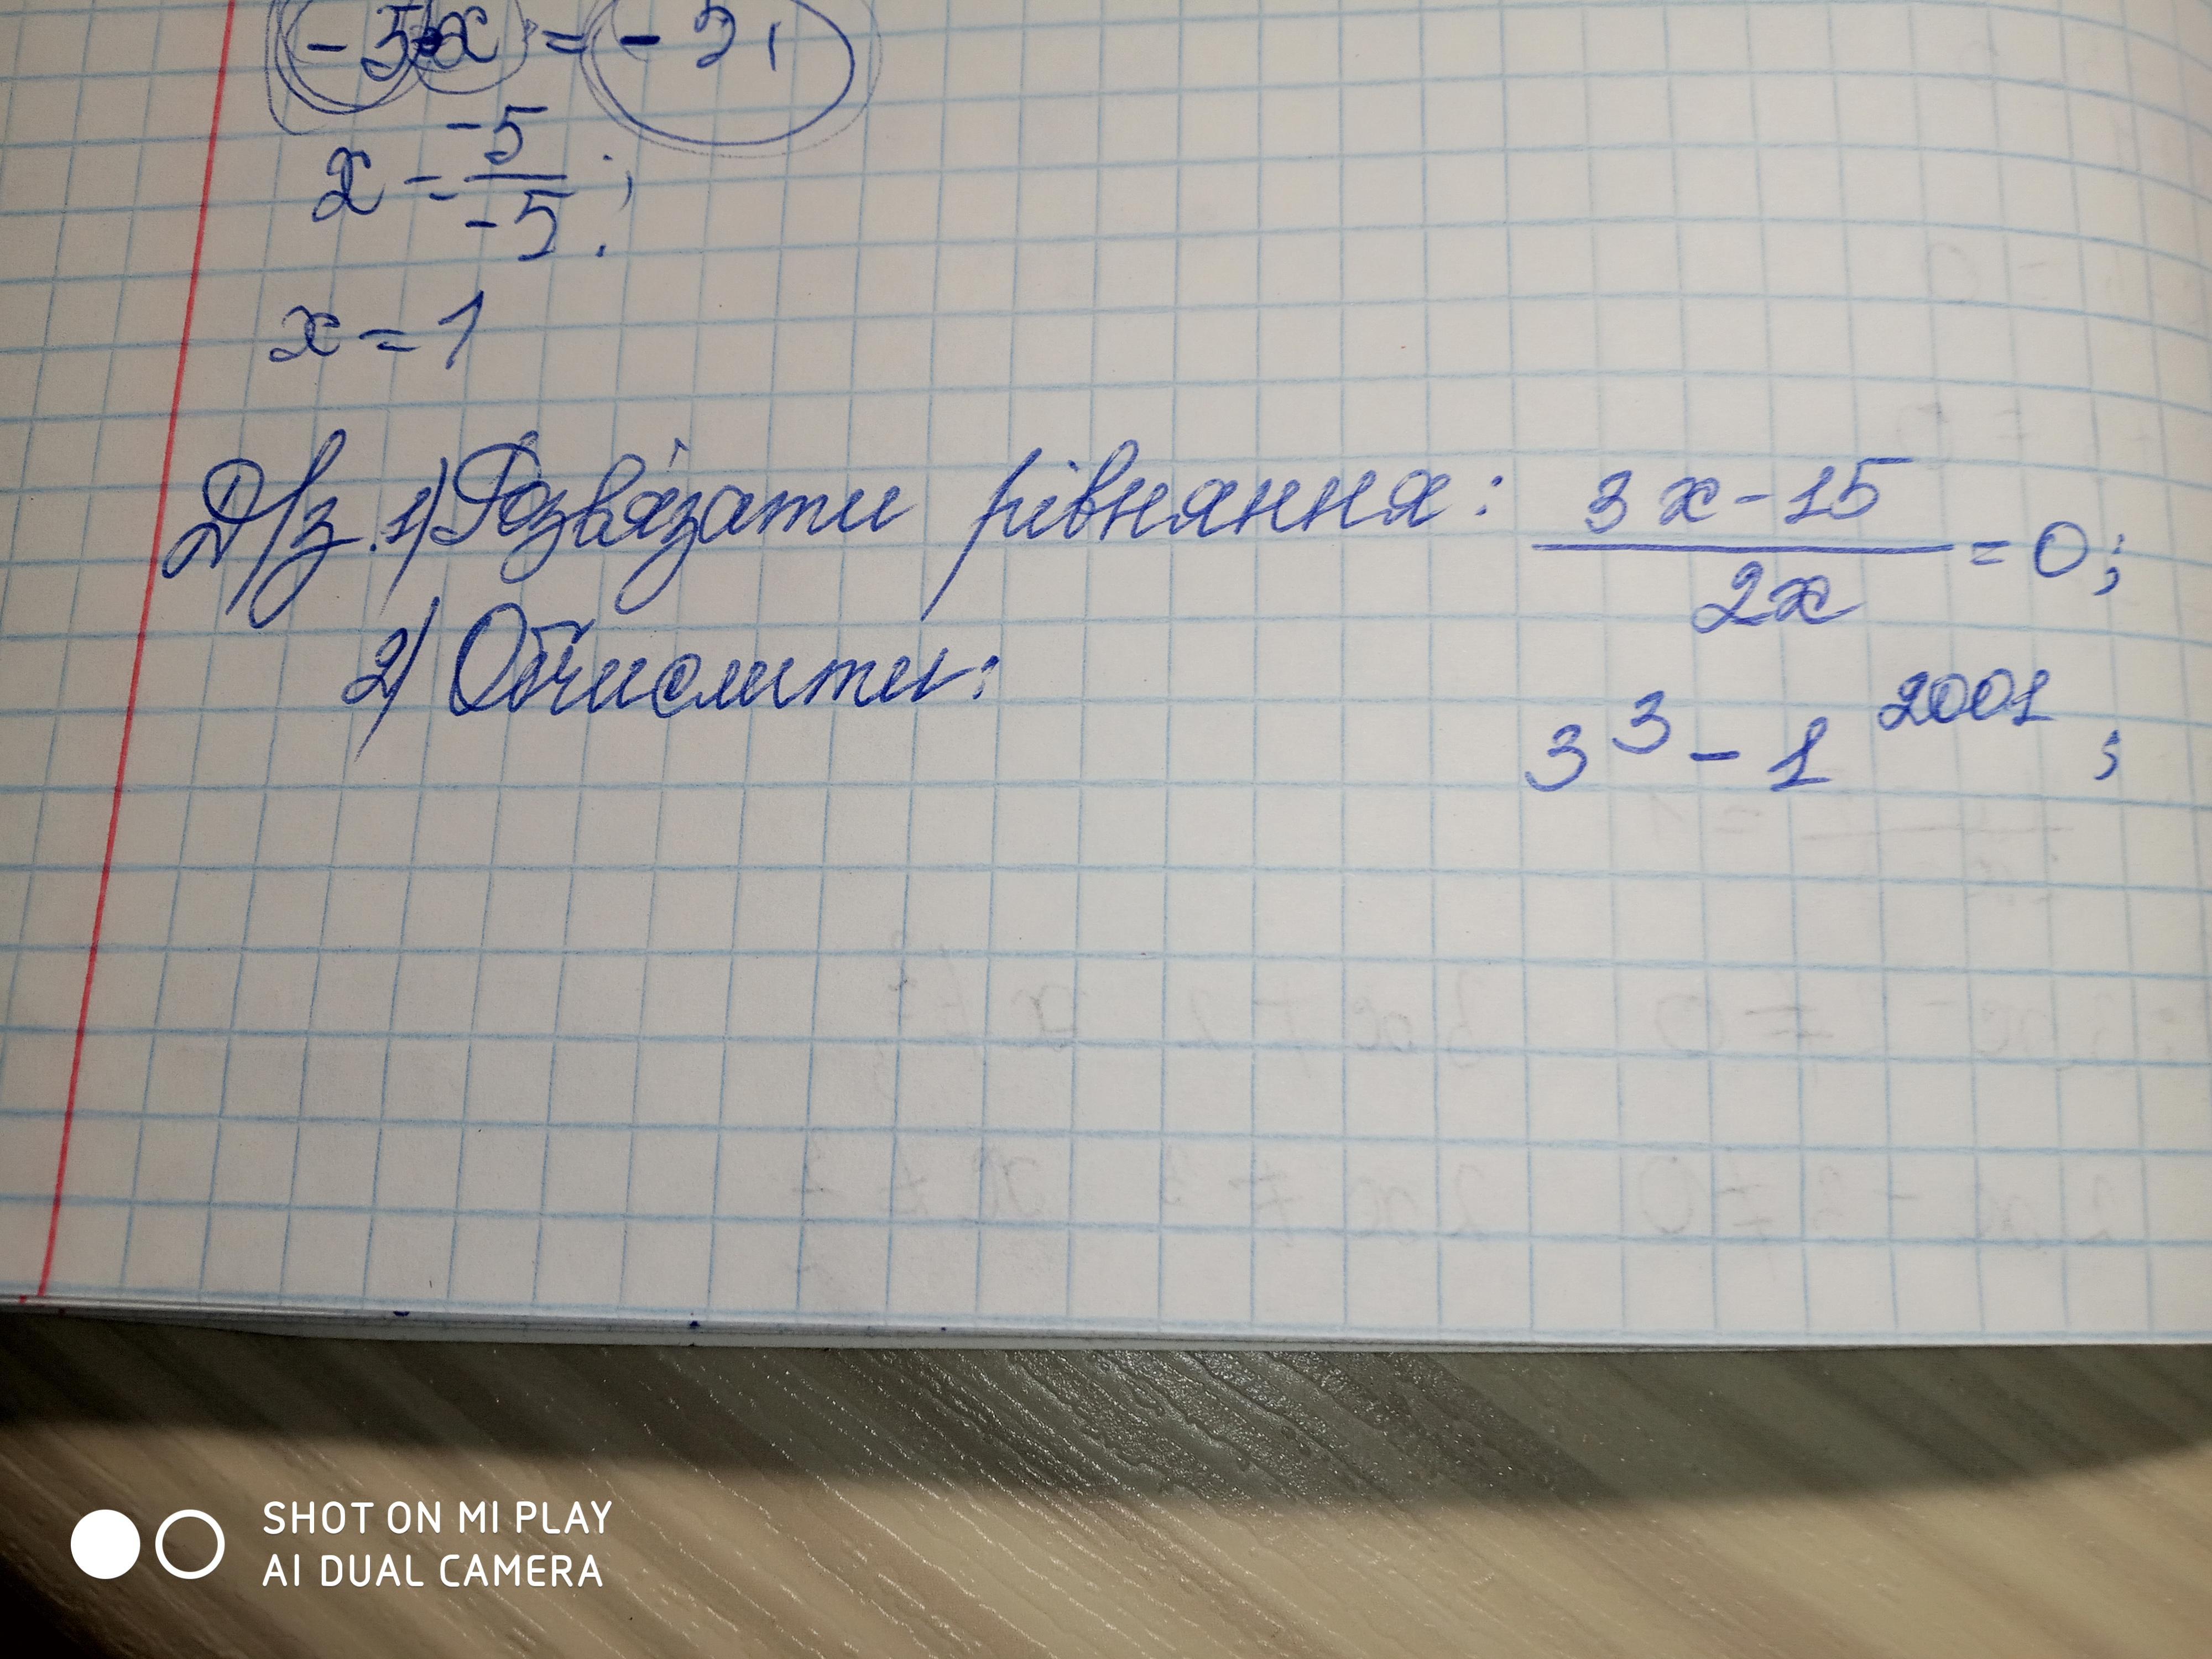 -5x = -5;
x = -5/-5;
x = 1
Д/з. 1) Розв'язати рівняння: (3x-15)/2x = 0;
2) Обчислити: 3³ - 1²⁰⁰¹;
SHOT ON MI PLAY
AI DUAL CAMERA